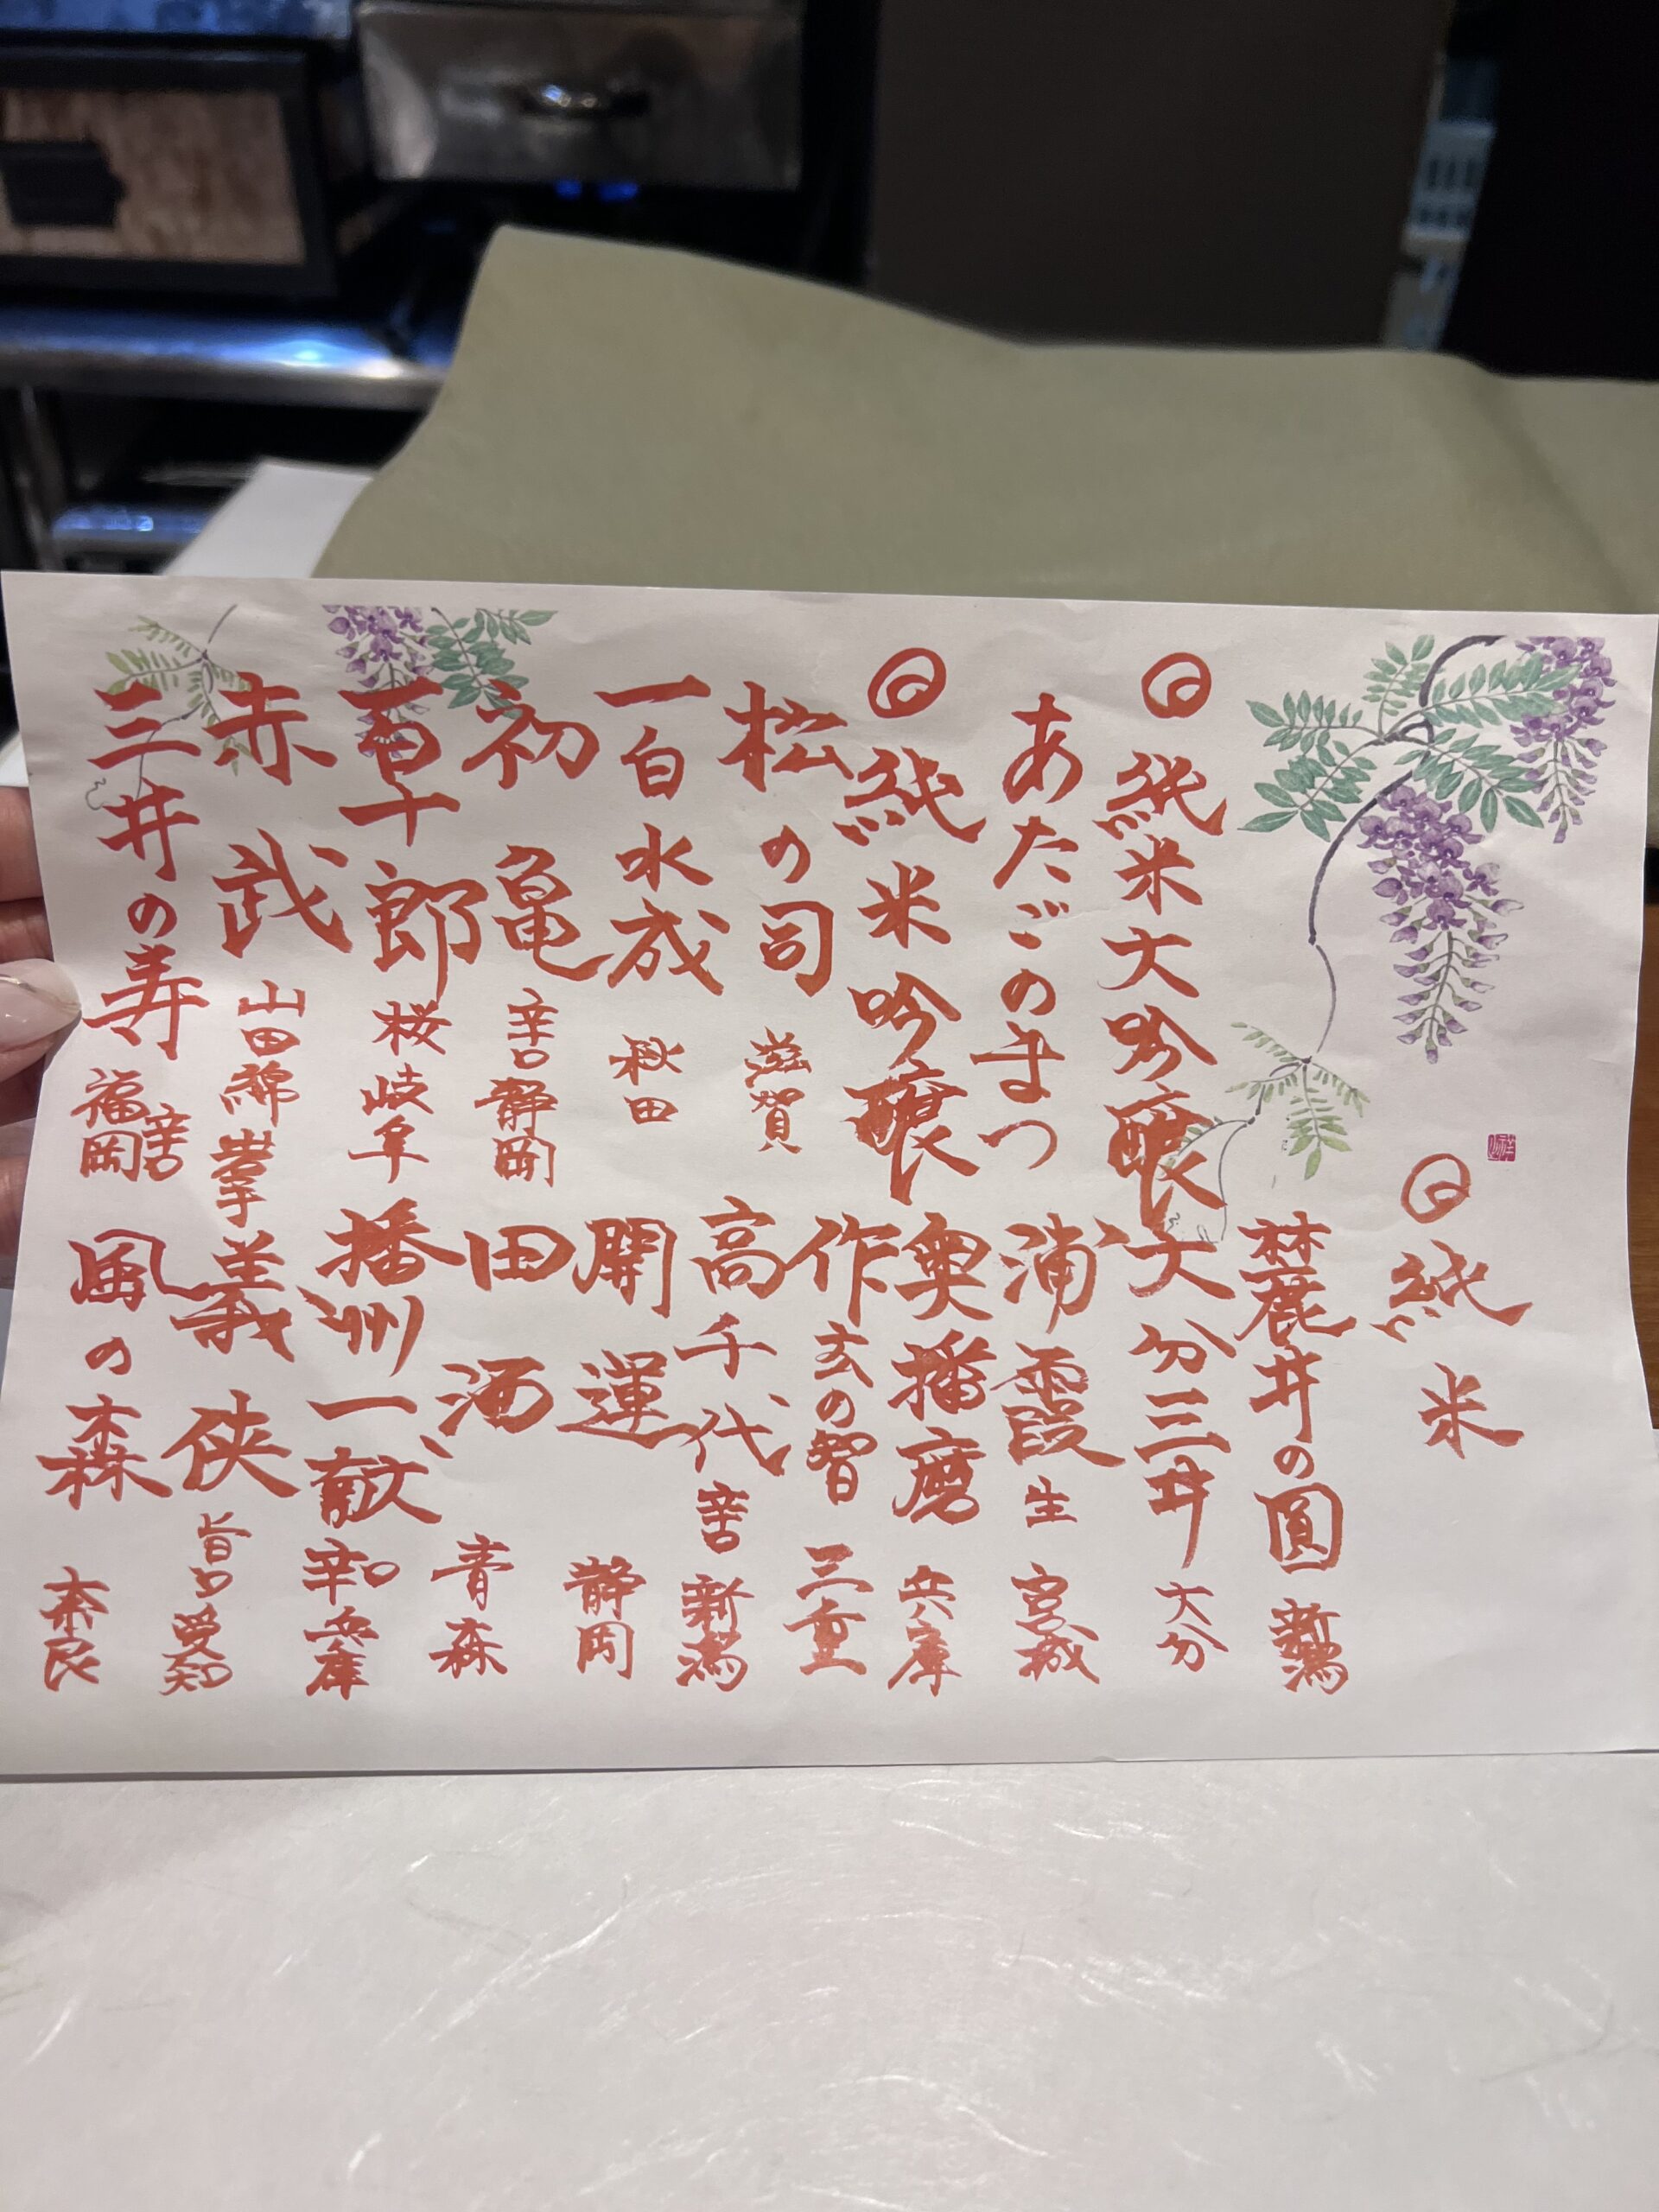 ◎純米大吟醸
あたごのまつ
◎純米吟醸
松の司 滋賀
一白水成 秋田
初亀 辛口 静岡
百十郎 桜 岐阜
赤武 山田錦 岩手
三井の寿 辛口 福岡
◎純米
麓井の圓 新潟
大分三井 大分
浦霞 生 宮城
奥播磨 兵庫
作 玄の智 三重
高千代 辛口 新潟
開運 静岡
田酒 青森
播州一献 辛口 兵庫
義侠 旨口 愛知
風の森 奈良